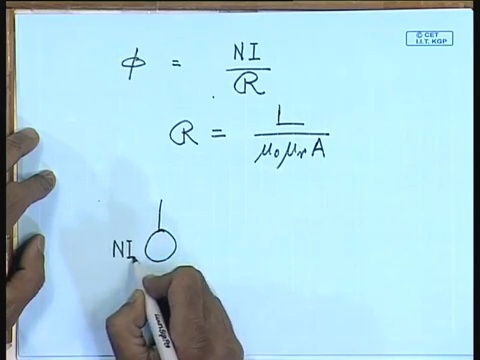 © CET
I.I.T. KGP
ϕ = NI / R
R = L / μ₀ μᵣ A
NI